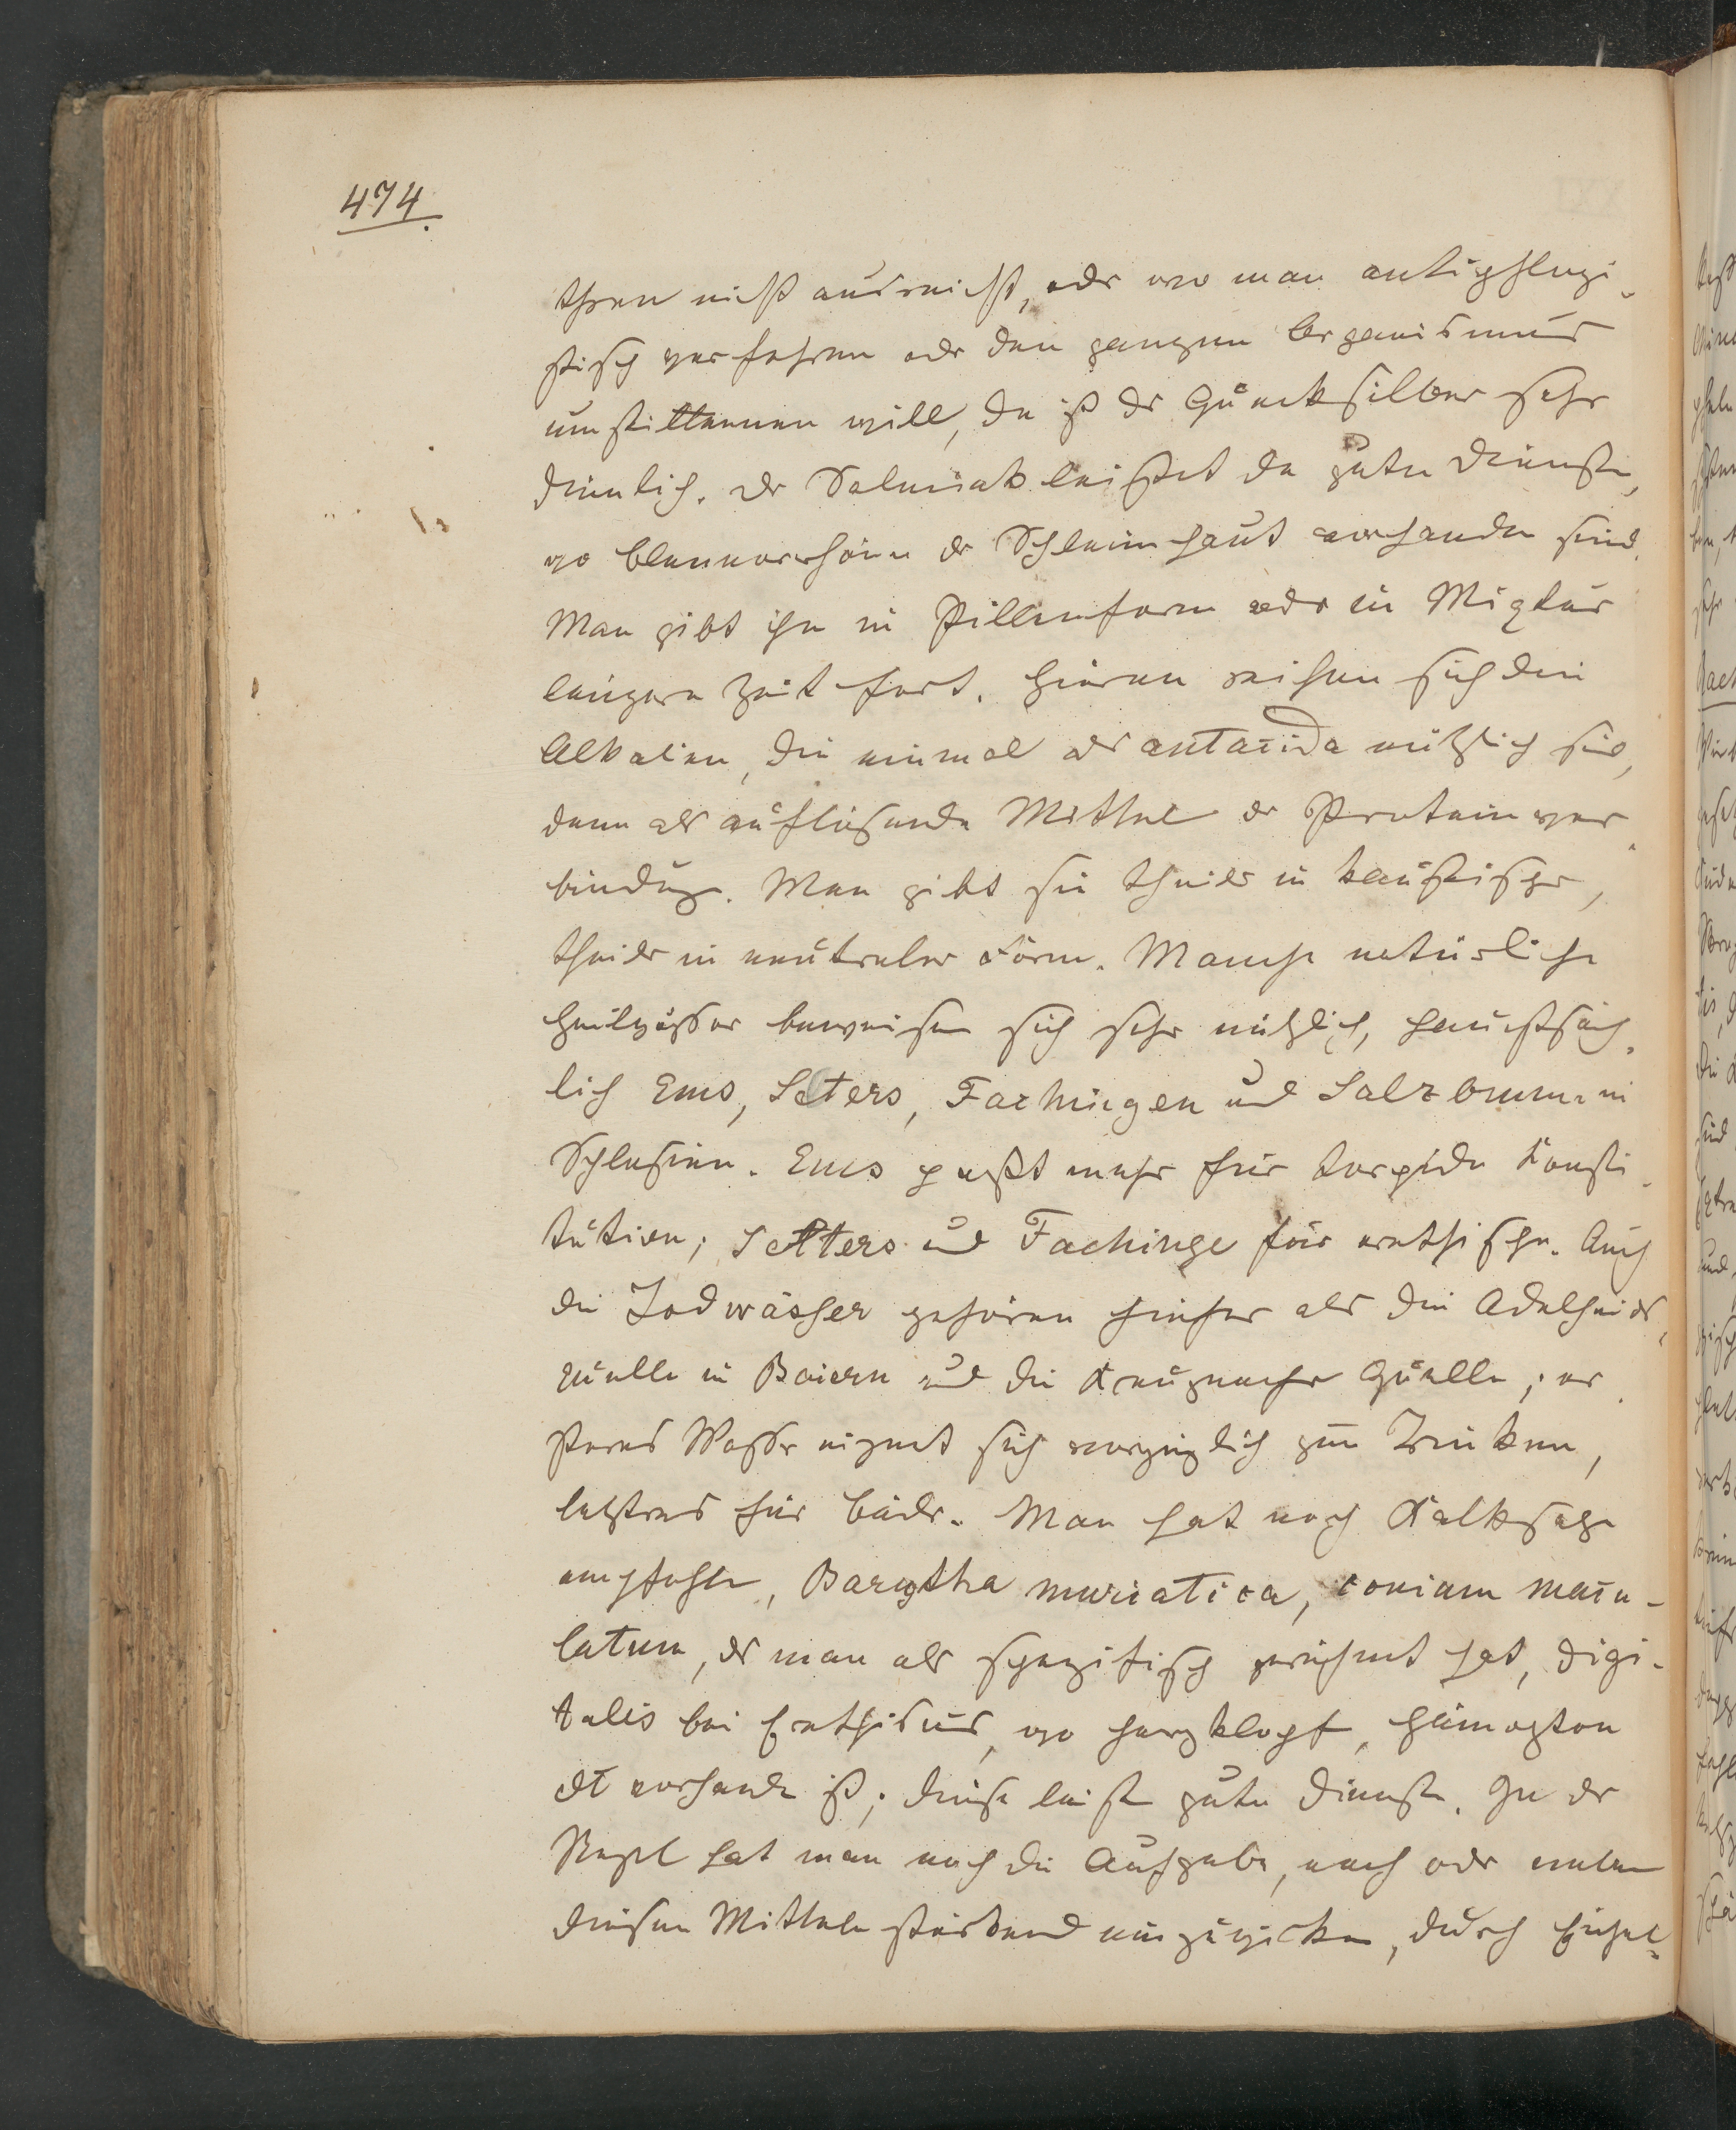 474.
thren nicht ausreicht, oder wo man antiphlogi-
stisch verfahren oder den ganzen Organismus
umstimmen will, da ist der Quecksilber sehr
dienlich. Der Salmiak leistet da gute Dienste,
wo Blennorrhöen der Schleimhaut vorhanden sind.
Man gibt ihn in Pillenform oder in Mixtur
längere Zeit fort. Hieran reihen sich die
Alkalien, die einmal als antacida nützlich sind,
dann als auflösende Mittel der Protein ver-
bindug. Man gibt sie theils in kaustischer,
theils in neutraler Form. Manche natürliche
Heilwässer beweisen sich sehr nützlich, hauptsäch-
lich Ems, Selters, Fachingen und Salzbrunn in
Schlesien. Ems paßt mehr für torpide Konsti-
tution; Selters und Fachinge für erethische. Auch
die Jodwässer gehören hieher als die Adelheids-
quelle in Baiern und die Kreuznacher Quelle; er-
steres Wasser eignet sich vorzüglich zum Trinken,
letzteres für Bäder. Man hat noch Kalksalze
empfohlen, Barytha muriatica, conium macu-
latum, das man als spezifisch gerühmt hat, digi-
talis bei Erethismus, wo Herzklopf, Hämopton
etc vorhanden ist; diese leisten gute Dienste. In der
Regel hat man noch die Aufgabe, nach oder neben
diesen Mitteln stärkend einzuwirken, durch Eichel-